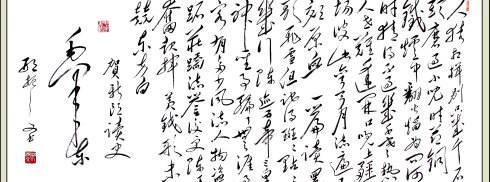 人猿相揖别只几个石
头磨过小儿时节铜
铁炉中翻火焰为问何
时猜得不过几千寒热
人世难逢开口笑上疆
场彼此弯弓月流遍了
郊原血一篇读罢
头飞雪但记得斑斑点点
几行陈迹五帝三皇
神圣事骗了无涯过
客有多少风流人物盗
跖庄蹻流誉后更陈王
奋起挥黄钺歌未
竟东方白
贺新郎读史
毛泽东